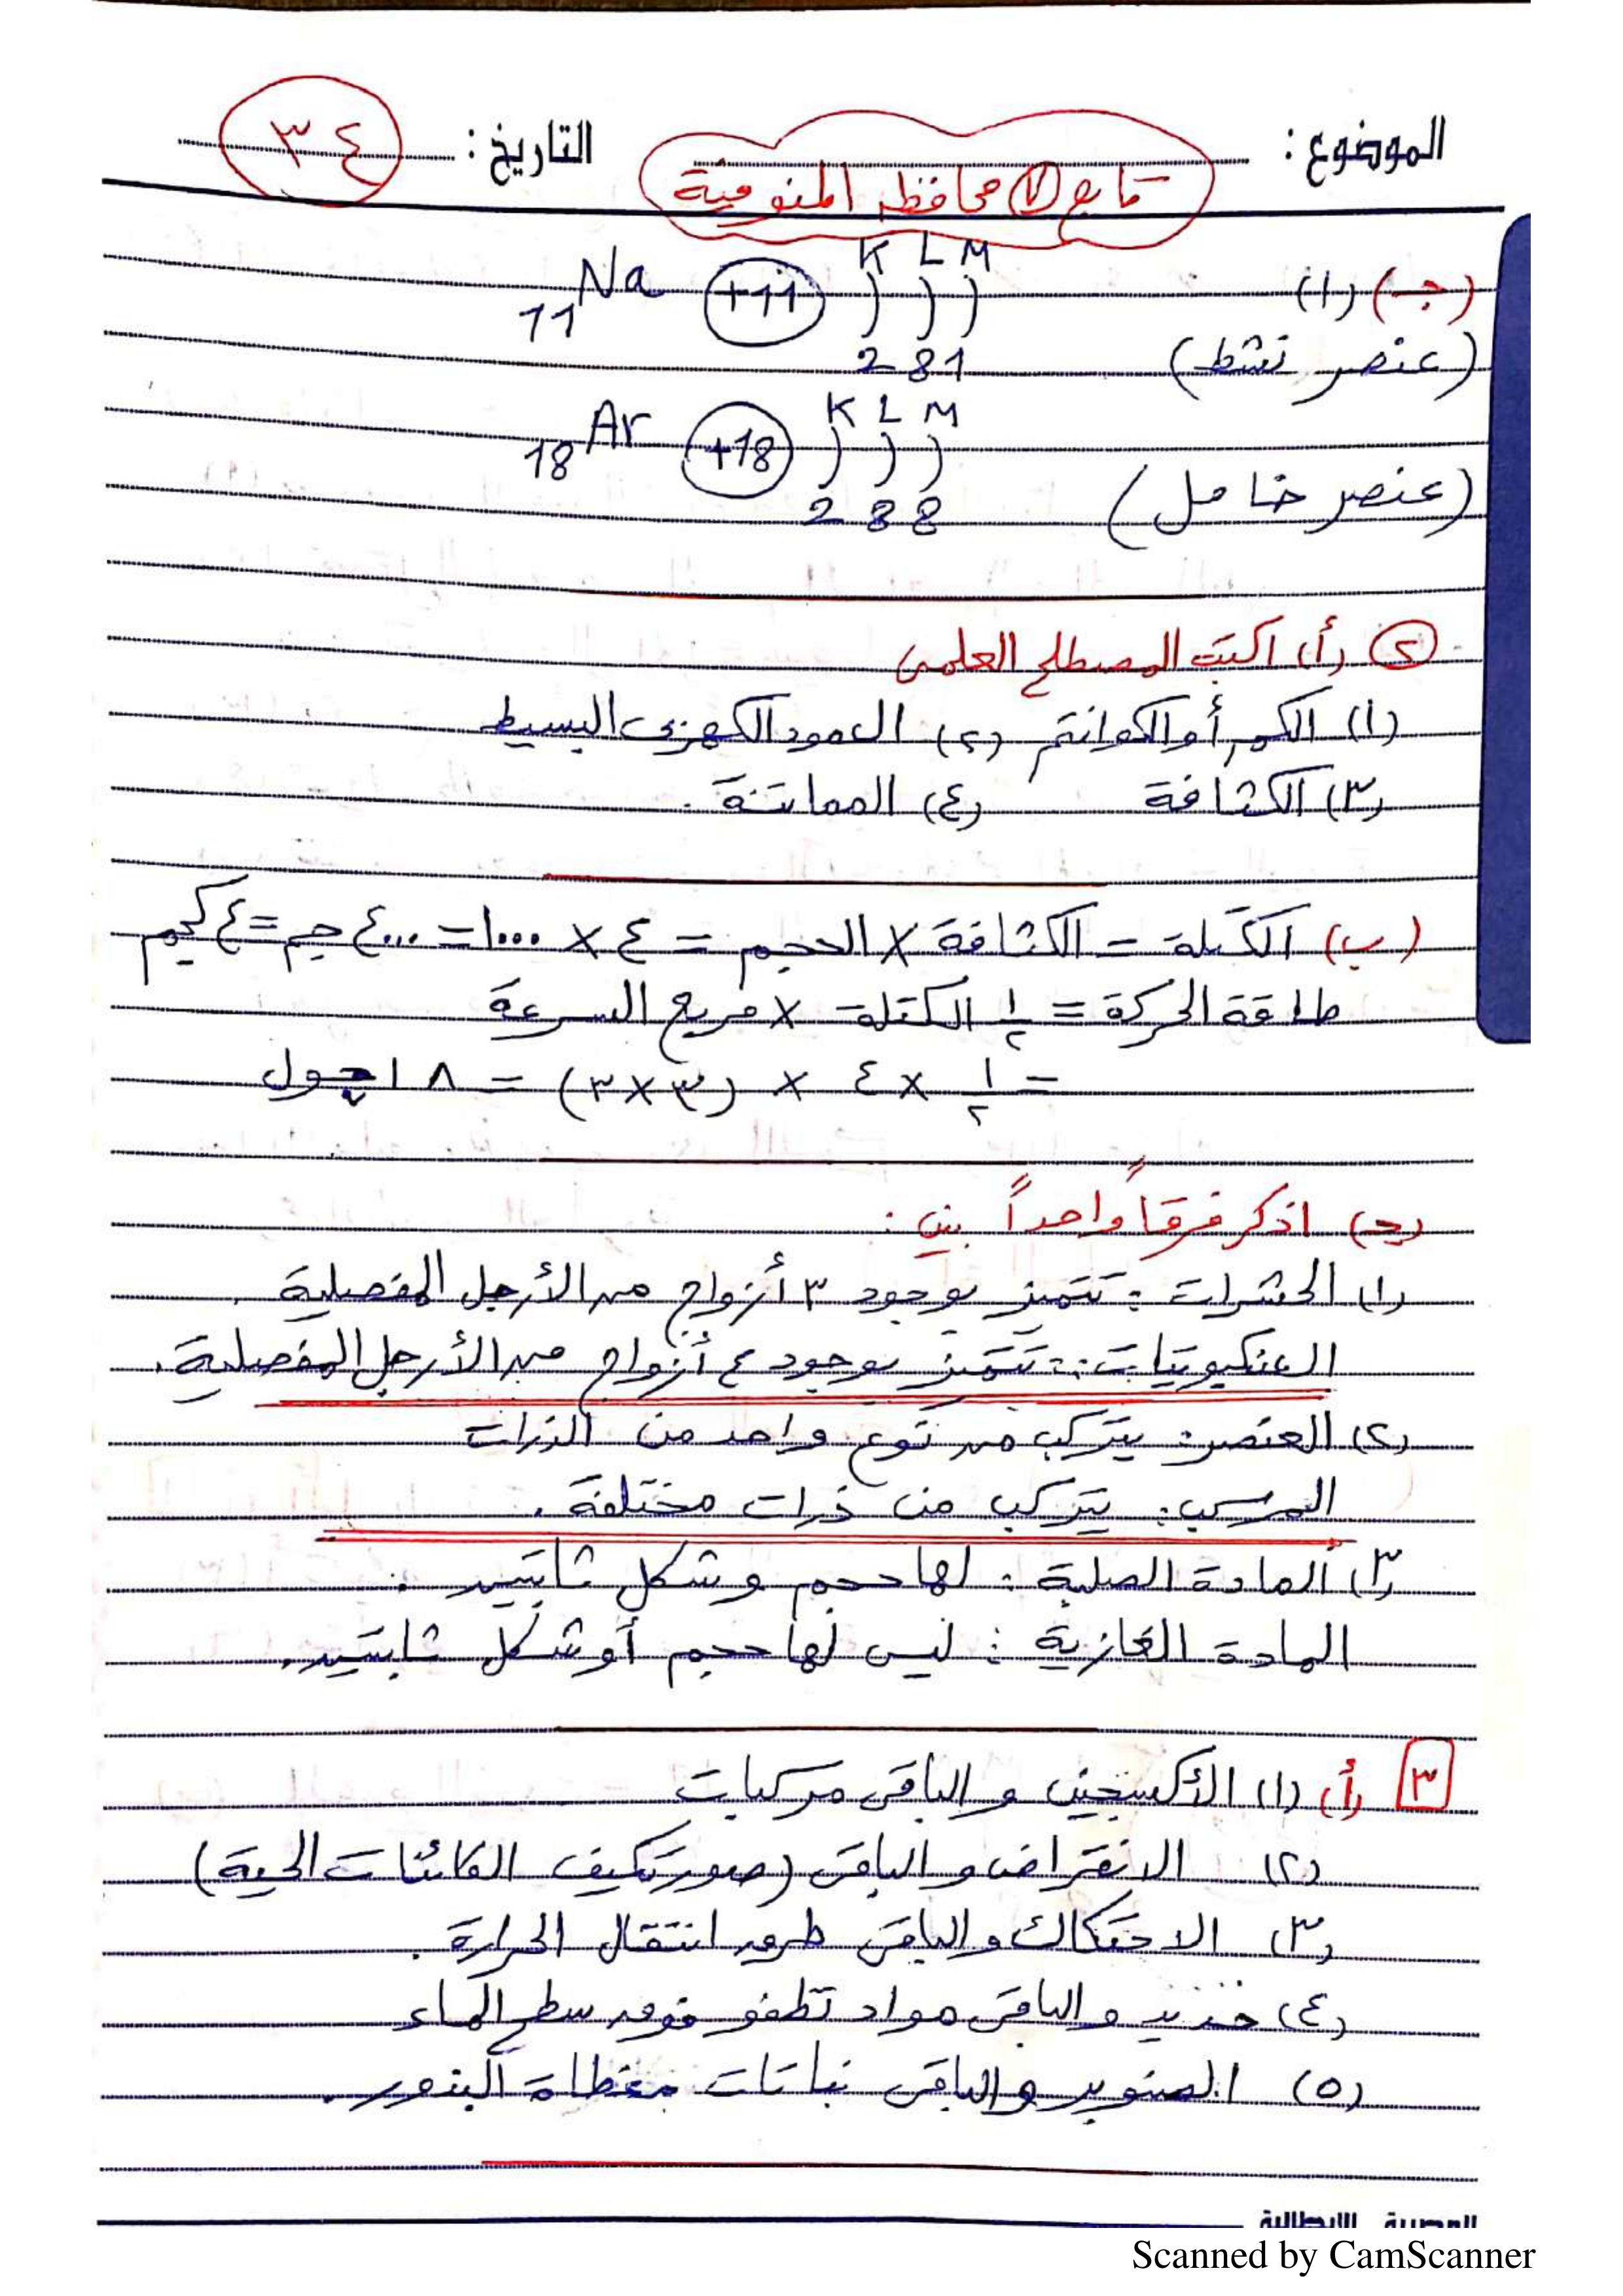 الموضوع :
التاريخ : ٣٤
تابع ٧ محافظة المنوفية
K L M
(جـ) (١) 11Na +11 ) ) )
2 8 1
(عنصر نشط)
K L M
18Ar +18 ) ) )
2 8 8
(عنصر خامل)
٢ (أ) اكتب المصطلح العلمى
(١) الكم أو الكوانتم (٢) العمود الكهربى البسيط
(٣) الكثافة (٤) المماتنة .
(ب) الكتلة = الكثافة × الحجم = ٤ × ١٠٠٠ = ٤٠٠٠ جم = ٤ كجم
طاقة الحركة = ١/٢ الكتلة × مربع السرعة
= ١/٢ × ٤ × (٣×٣) = ١٨ جول
(جـ) اذكر فرقاً واحداً بين :
(١) الحشرات : تتميز بوجود ٣ أزواج من الأرجل المفصلية .
العنكبوتيات : تتميز بوجود ٤ أزواج من الأرجل المفصلية .
(٢) العنصر : يتركب من نوع واحد من الذرات
المركب : يتركب من ذرات مختلفة .
(٣) المادة الصلبة : لها حجم وشكل ثابتين .
المادة الغازية : ليس لها حجم أو شكل ثابتين .
٣ (أ) (١) الأكسجين والباقى مركبات
(٢) الانقراض والباقى (صور تكيف الكائنات الحية)
(٣) الاحتكاك والباقى طرق انتقال الحرارة .
(٤) حديد والباقى مواد تطفو فوق سطح الماء
(٥) الصنوبر والباقى نباتات مغطاة البذور .
المصرية الإيطالية
Scanned by CamScanner